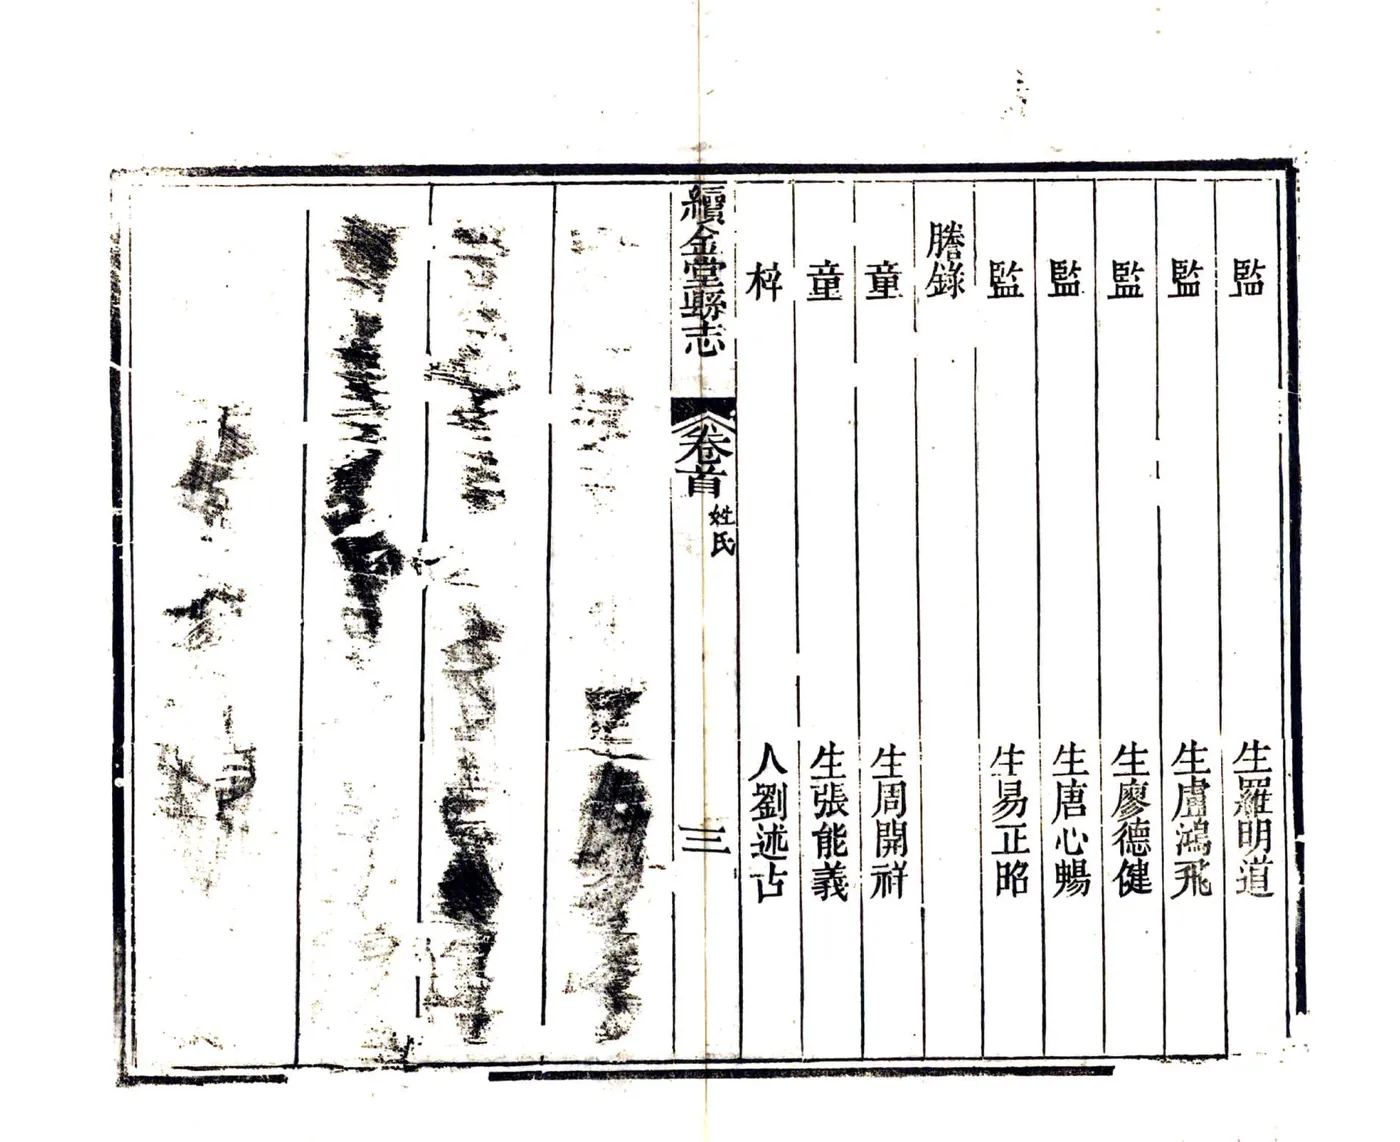 監生羅明道
監生盧鴻飛
監生廖德健
監生唐心暢
監生易正昭
謄錄
童生周開祥
童生張能義
梓人劉述古
續金堂縣志
卷首
姓氏
三